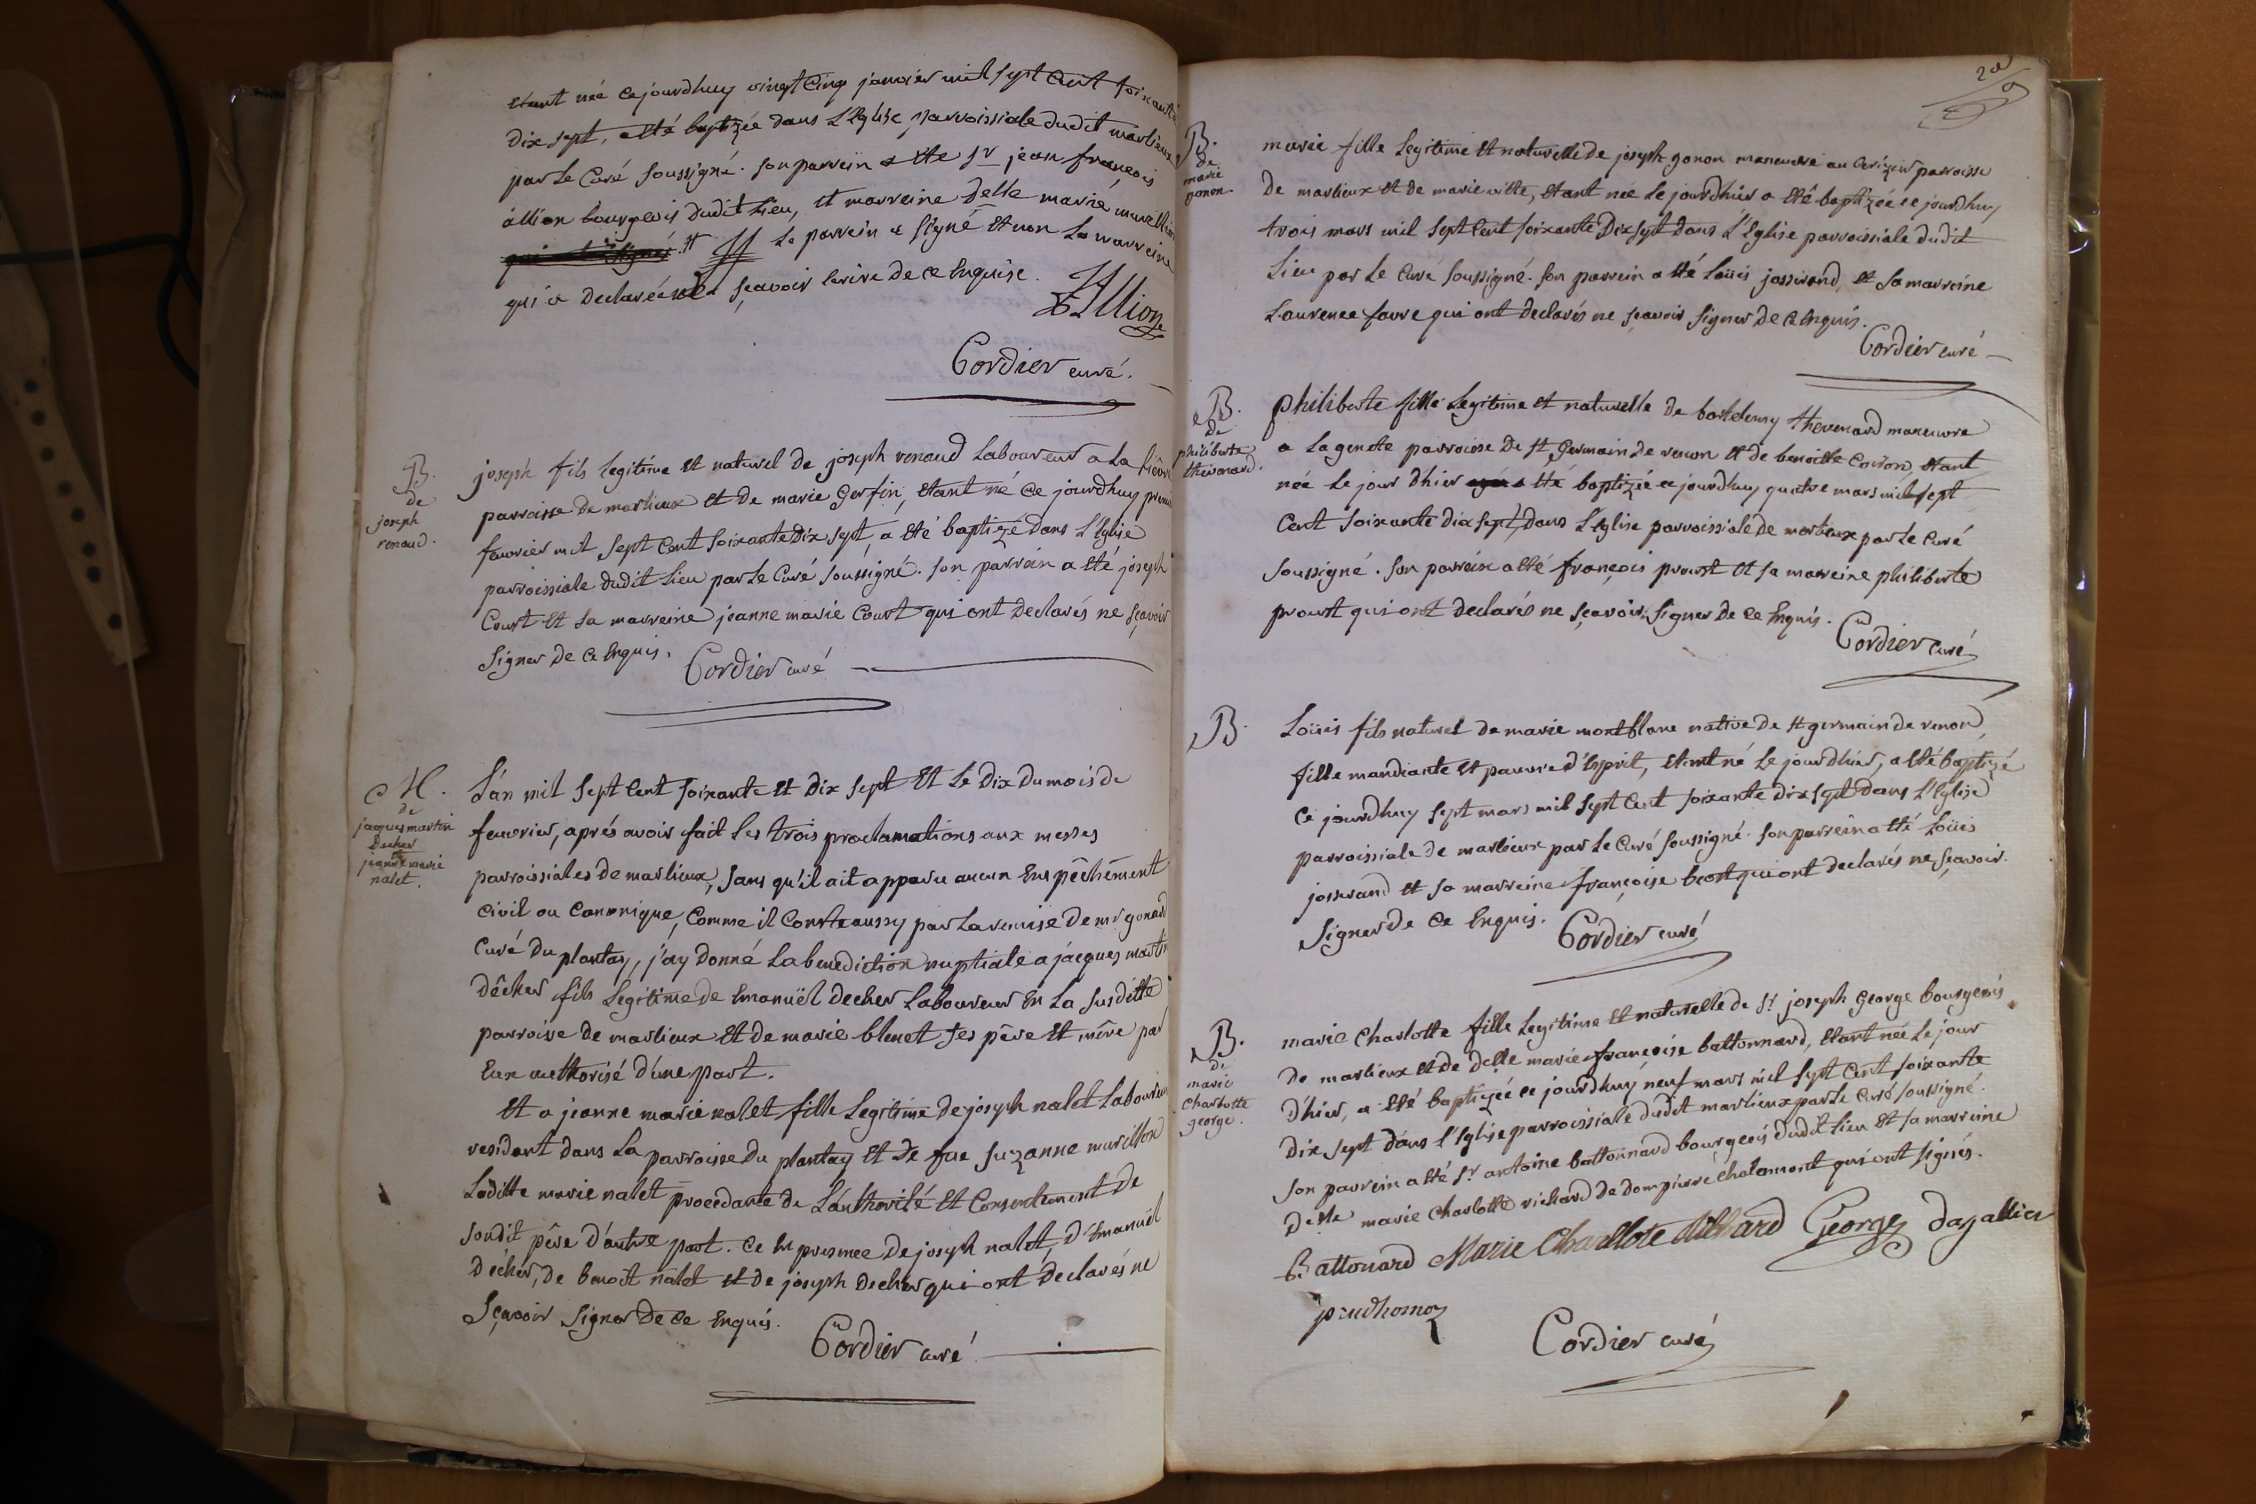 étant née cejourdhuy vingt cinq janvier mil sept cent soixante
Dix sept, a été baptizée dans L'Eglise parroissiale dudit marlieux
par le Curé soussigné. son parrein a été Sr jean françois
allion bourgeois dudit lieu, et marreine delle marie
Le parrein a signé et non La marreine
qui a declarée ne sçavoir Ecrire de ce Enquise.
Allion
Cordier curé.
B.
de
joseph
renaud.
joseph fils legitime et naturel de joseph renaud Laboureur a La
parroisse de marlieux et de marie Gerfin, étant né ce jourdhuy
fevrier mil sept cent soixante Dix sept, a été baptizé dans L'Eglise
parroissiale dudit Lieu par Le Curé soussigné. son parrein a été joseph
Court et sa marreine jeanne marie Court qui ont declarés ne sçavoir
signer de ce Enquis.
Cordier curé
M.
de
jacques martin
Decher
et
jeanne marie
nalet.
L'an mil sept cent soixante et dix sept Et Le dix du mois de
fevrier, aprés avoir fait Les trois proclamations aux messes
parroissiales de marlieux, sans qu'il ait apparu aucun Empêchêment
Civil ou Canonique, Comme il Conste aussy par La remise de mr gonard
Curé du plantay, j'ay donné La benediction nuptiale a jacques martin
dêcher fils Legitime de Emanuël decher Laboureur En La susditte
parroisse de marlieux et de marie bluet ses pêre et mêre par
Eux authorisé d'une part.
Et a jeanne marie nalet fille Legitime de joseph nalet Laboureur
residant dans La parroisse du plantay et de fue suzanne
Laditte marie nalet procedante de L'authorité et Consentement de
sondit pêre d'autre part. Ce En presence de joseph nalet, d'Emanuël
Décher, de benoît nalet et de joseph Decher qui ont declarés ne
sçavoir signer de ce Enquis.
Cordier curé
B.
de
marie
gonon.
marie fille Legitime et naturelle de joseph gonon manœuvre au parroisse
de marlieux et de marie vitte, étant née Le jourdhier a été baptizée ce jourdhuy
trois mars mil sept cent soixante Dix sept dans L'Eglise parroissiale dudit
Lieu par Le Curé soussigné. son parrein a été Loüis josserand et sa marreine
Laurence favre qui ont declarés ne sçavoir signer de ce Enquis.
Cordier curé
B.
de
philiberte
thevenard.
philiberte fille Legitime et naturelle de barthelemy thevenard manœuvre
a La genete parroisse de st Germain de renon et de benoitte Coiron, étant
née Le jour dhier a été baptizée ce jourdhuy quatre mars mil sept
Cent soixante dix sept, dans L'Eglise parroissiale de marlieux par Le Curé
soussigné. son parrein a été françois proust et sa marreine philiberte
proust qui ont declarés ne sçavoir signer de ce Enquis.
Cordier curé
B.
Loüis fils naturel de marie montblanc native de st germain de renon,
fille mandiante et pauvre d'Esprit, étant né Le jourdhier, a été baptizé
ce jourdhuy sept mars mil sept cent soixante dix sept dans L'Eglise
parroissiale de marlieux par Le Curé soussigné. son parrein a été Loüis
josserand et sa marreine françoise qui ont declarés ne sçavoir
signer de ce Enquis.
Cordier curé
B.
de
marie
Charlotte
george.
marie Charlotte fille Legitime et naturelle de Sr joseph George bourgeois
de marlieux et de delle marie françoise battonnard, étant née Le jour
d'hier, a été baptizée ce jourdhuy neuf mars mil sept cent soixante
dix sept dans L'Eglise parroissiale dudit marlieux par Le Curé soussigné.
son parrein a été Sr antoine battonnard bourgeois dudit Lieu et sa marreine
Delle marie Charlotte richard de dompierre Chalamont qui ont signés.
Battonard Marie Charllote Richard George dagallier
prudhomo
Cordier curé